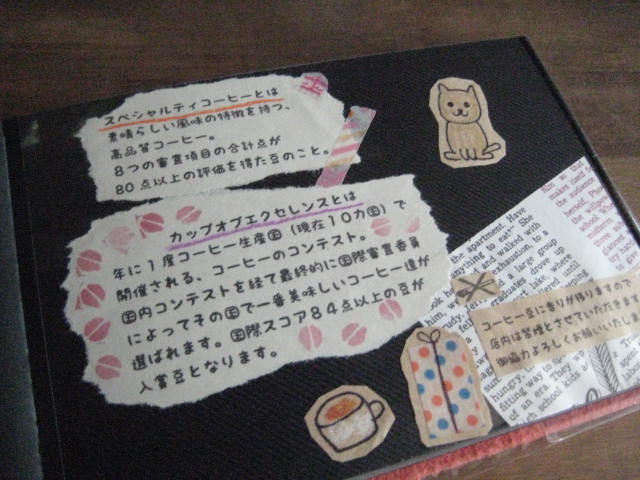 スペシャルティコーヒーとは
素晴らしい風味の特徴を持つ、
高品質コーヒー。
8つの審査項目の合計点が
80点以上の評価を得た豆のこと。
カップオブエクセレンスとは
年に1度コーヒー生産国（現在10カ国）で
開催される、コーヒーのコンテスト。
国内コンテストを経て最終的に国際審査委員
によってその国で一番美味しいコーヒー達が
選ばれます。国際スコア84点以上の豆が
入賞豆となります。
the apartment. Have
anything to eat?" She
and walked with
exhaustion, to a
a large group
graduates drove up
lake, where
until
コーヒー豆に香りが移りますので
店内は禁煙とさせていただきます
御協力よろしくお願いいたしま
hungry,
fitting way to
of an era. They
school kids